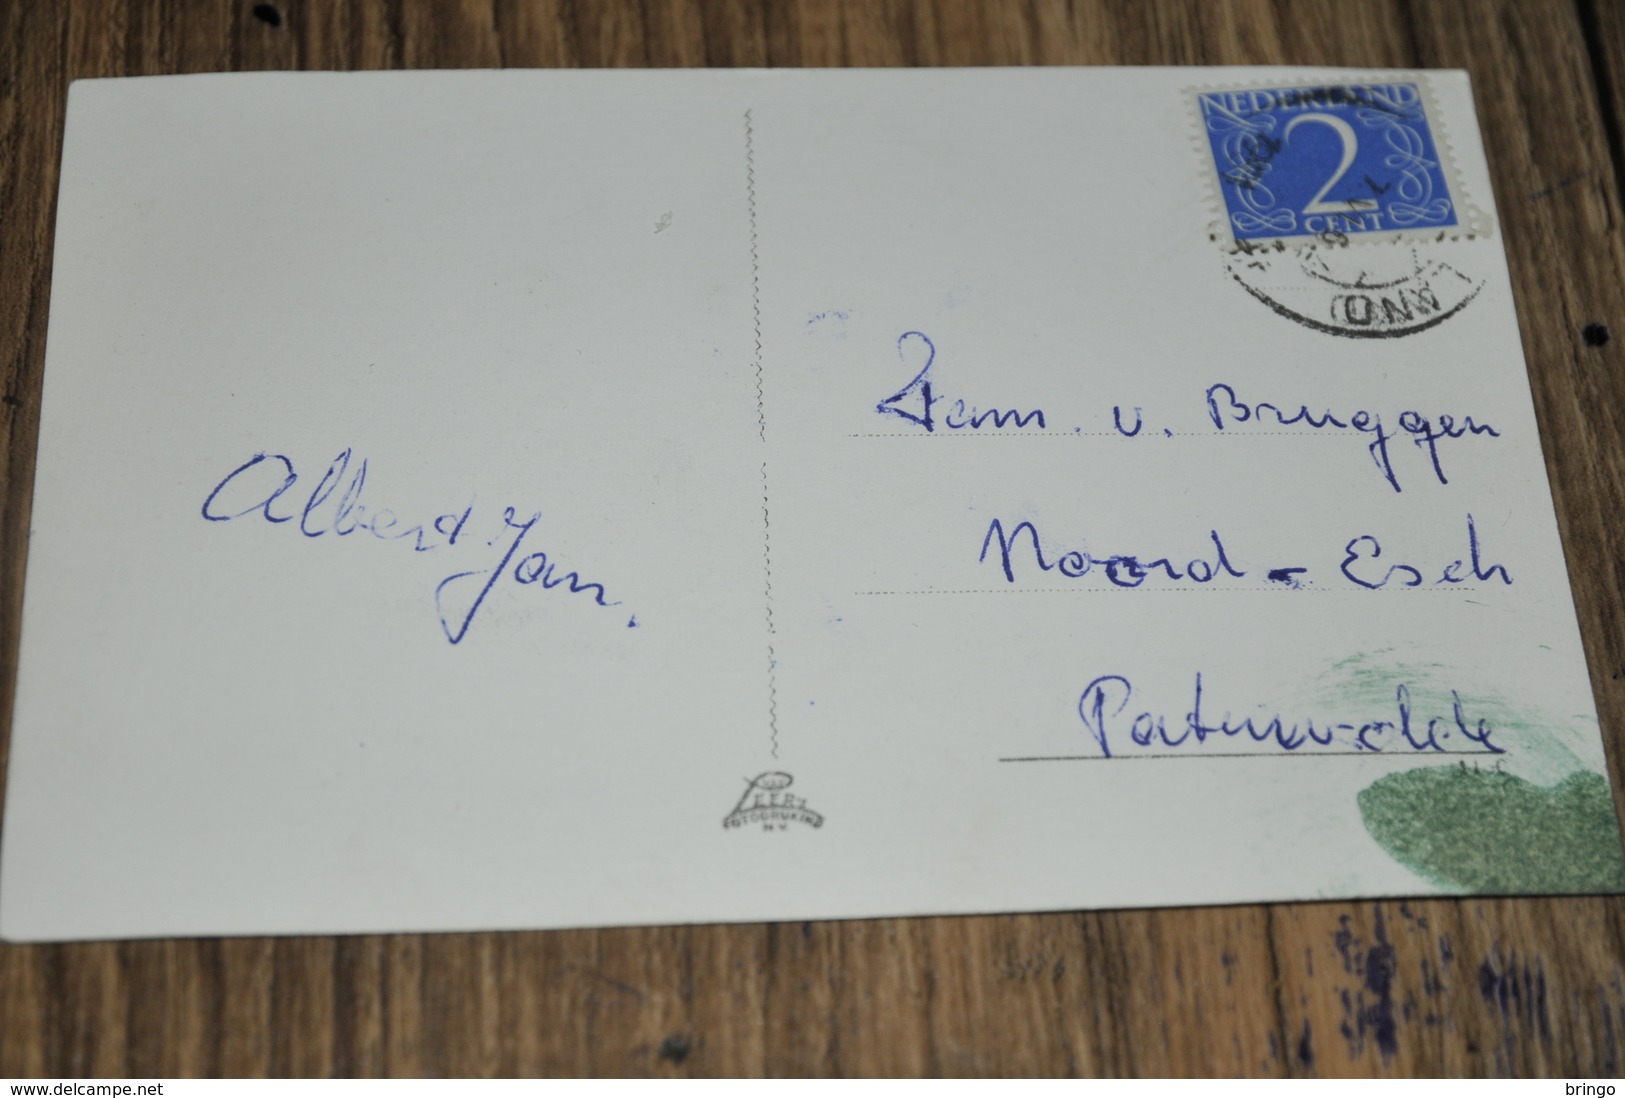 NEDERLAND
2
CENT
Fam. v. Bruggen
Noord-Esch
Paterswolde
Albert Jan.
FOTODRUK IND
N.V.
delcampe.net
bringo